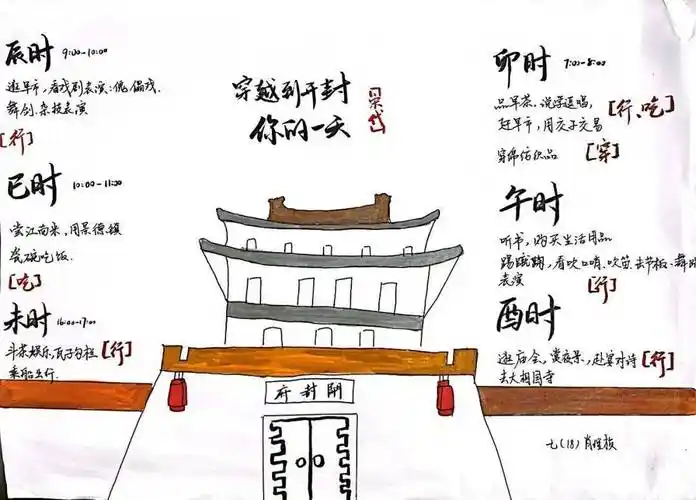 穿越到开封
你的一天
宋代
卯时 7:00-8:00
品早茶、说学逗唱,
赶早市,用交子交易
[行、吃]
穿棉纺织品 [穿]
辰时 9:00-10:00
逛早市,看戏剧表演:傀儡戏、
舞剑、杂技表演
[行]
巳时 10:00-11:00
尝江南米,用景德镇
瓷碗吃饭.
[吃]
午时
听书,购买生活用品
踢蹴鞠,看吹口哨、吹笛、击节板、舞蹈
表演
[行]
未时 16:00-17:00
斗茶娱乐,瓦子勾栏 [行]
乘船出行.
酉时
逛庙会,赏夜景,赴宴对诗 [行]
去大相国寺
府封開
七(18) 肖